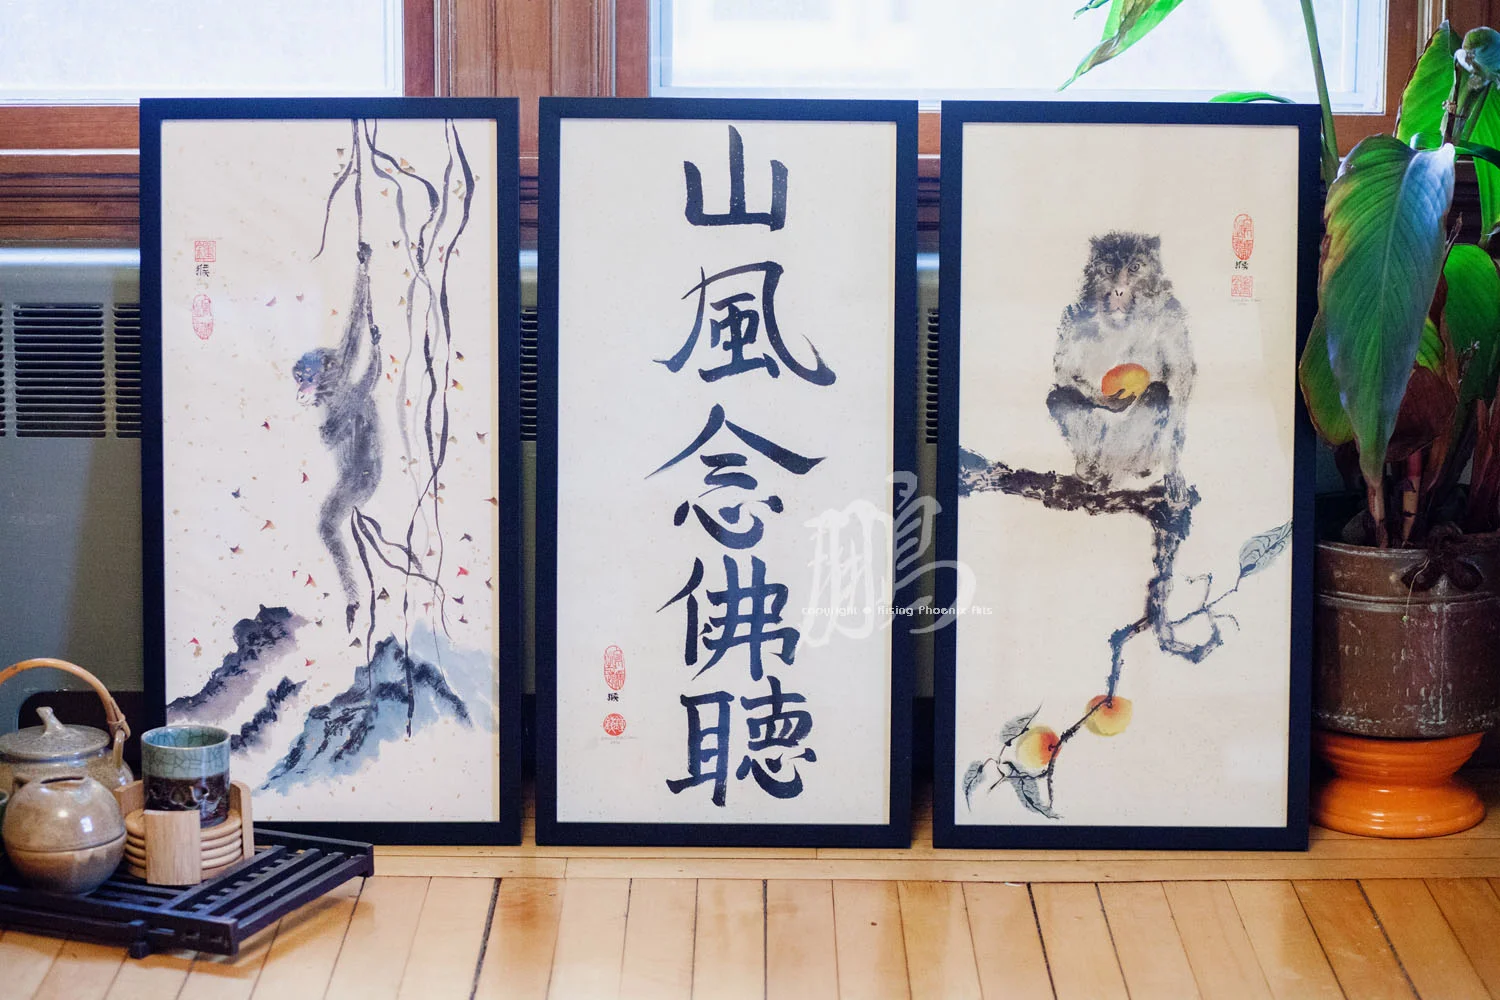 猴
山
風
念
佛
聽
猴
猴
鵬
copyright © Rising Phoenix Arts